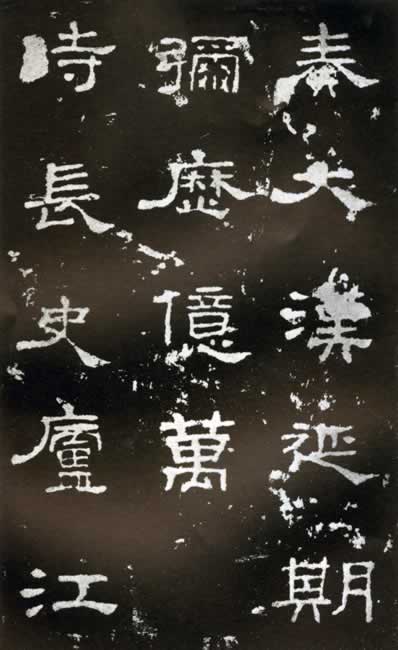 奏大漢延期
彌歷億萬
時長史廬江